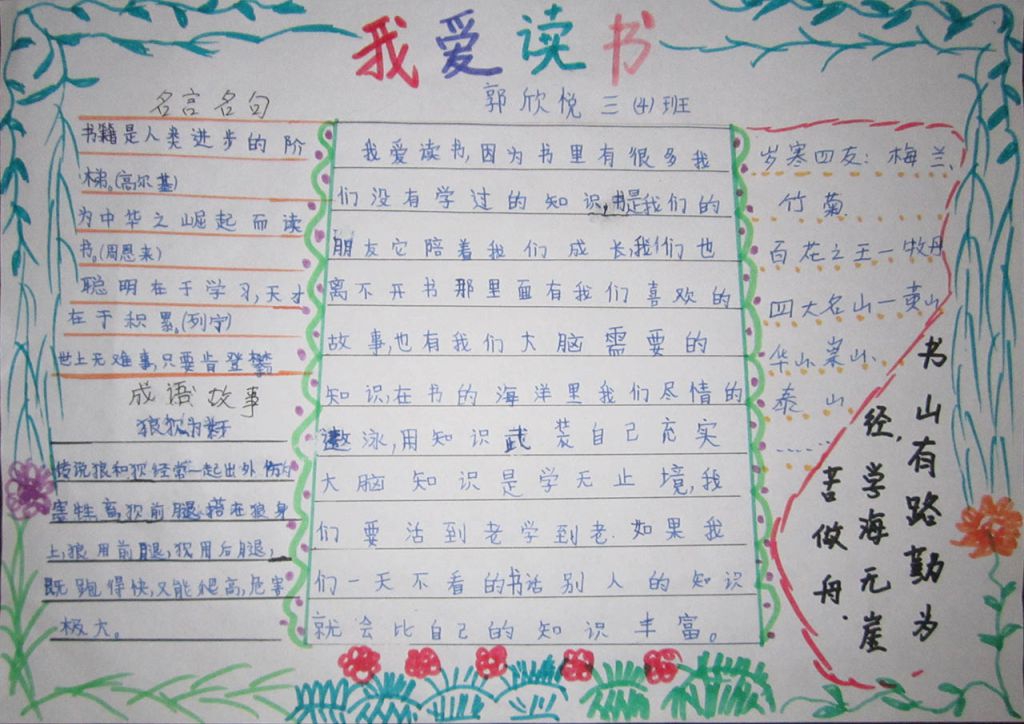 我爱读书
郭欣悦 三(4)班
名言名句
书籍是人类进步的阶
梯。(高尔基)
为中华之崛起而读
书。(周恩来)
聪明在于学习,天才
在于积累。(列宁)
世上无难事,只要肯登攀
成语故事
狼狈为奸
传说狼和狈经常一起出外伤
害牲畜,狈前腿 搭在狼身
上,狼用前腿,狈用后腿,
既跑得快,又能爬高,危害
极大。
我爱读书,因为书里有很多我
们没有学过的知识,书是我们的
朋友它陪着我们成长,我们也
离不开书那里面有我们喜欢的
故事,也有我们大脑需要的
知识,在书的海洋里我们尽情的
遨泳,用知识武装自己充实
大脑 知识是学无止境,我
们要活到老学到老.如果我
们一天不看的书话别人的知识
就会比自己的知识丰富。
岁寒四友:梅兰、
竹菊
百花之王一牧丹
四大名山一衷山
华山、嵩山、
泰山、
……
书山有路勤为
经,学海无崖
苦做舟.